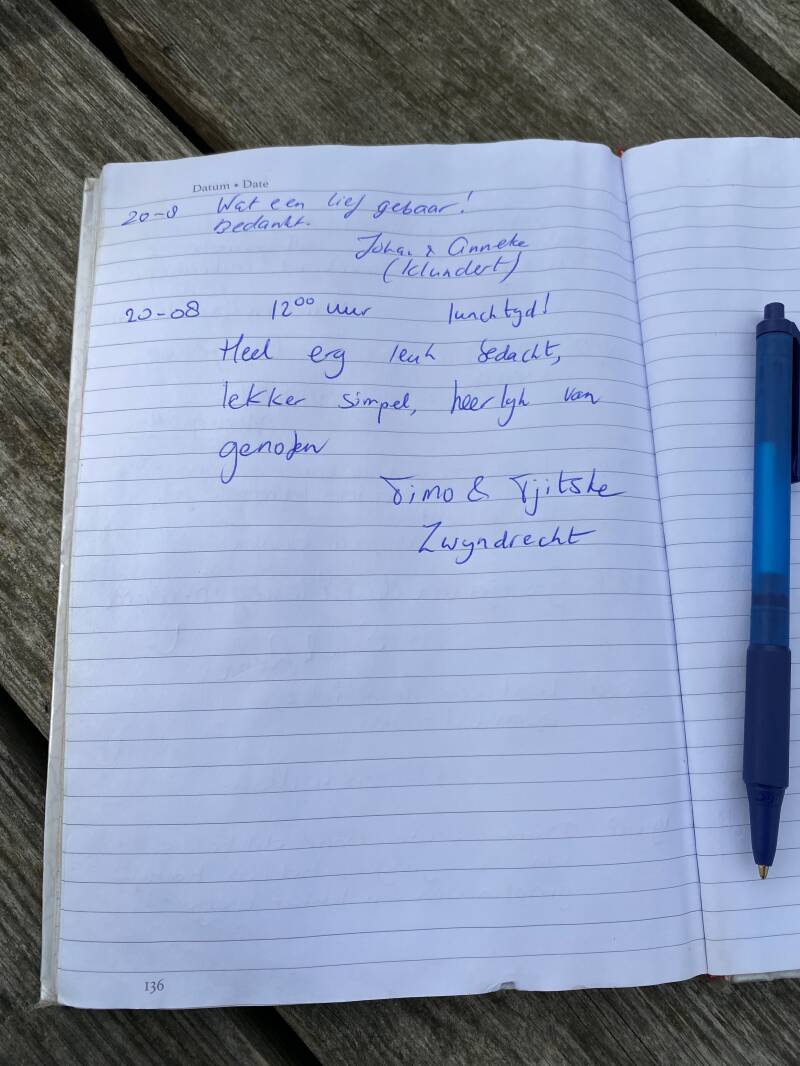 Datum • Date
20-8 Wat een lief gebaar!
Bedankt.
Johan & Anneke
(Klundert)
20-08 12⁰⁰ uur lunchtyd!
Heel erg leuk bedacht,
lekker simpel, heerlyk van
genoten
Timo & Tjitske
Zwyndrecht
136